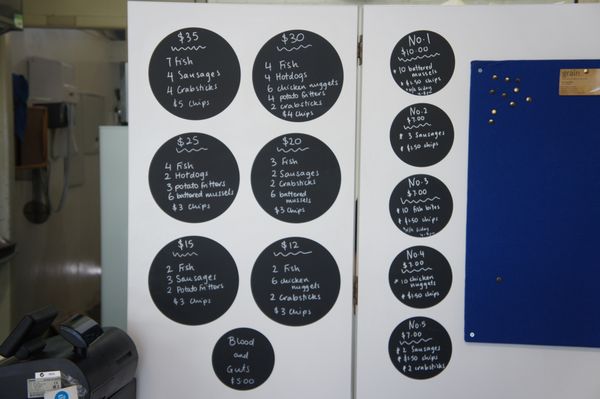 $35
7 Fish
4 Sausages
4 Crabsticks
$5 Chips
$30
4 Fish
4 Hotdogs
6 chicken nuggets
4 potato fritters
2 crabsticks
$4 Chips
$25
4 Fish
2 Hotdogs
3 potato fritters
6 battered mussels
$3 Chips
$20
3 Fish
2 Sausages
2 Crabsticks
6 battered
mussels
$3 Chips
$15
2 Fish
3 Sausages
2 Potato fritters
$3 Chips
$12
2 Fish
6 chicken
nuggets
2 Crabsticks
$3 Chips
Blood
and
Guts
$5.00
No.1
$10.00
10 battered
mussels
$1.50 chips
No.2
$7.00
3 Sausages
$1.50 chips
No.3
$7.00
10 fish bites
$1.50 chips
No.4
$7.00
10 chicken
nuggets
$1.50 chips
No.5
$7.00
2 Sausages
$1.50 chips
2 crabsticks
grain